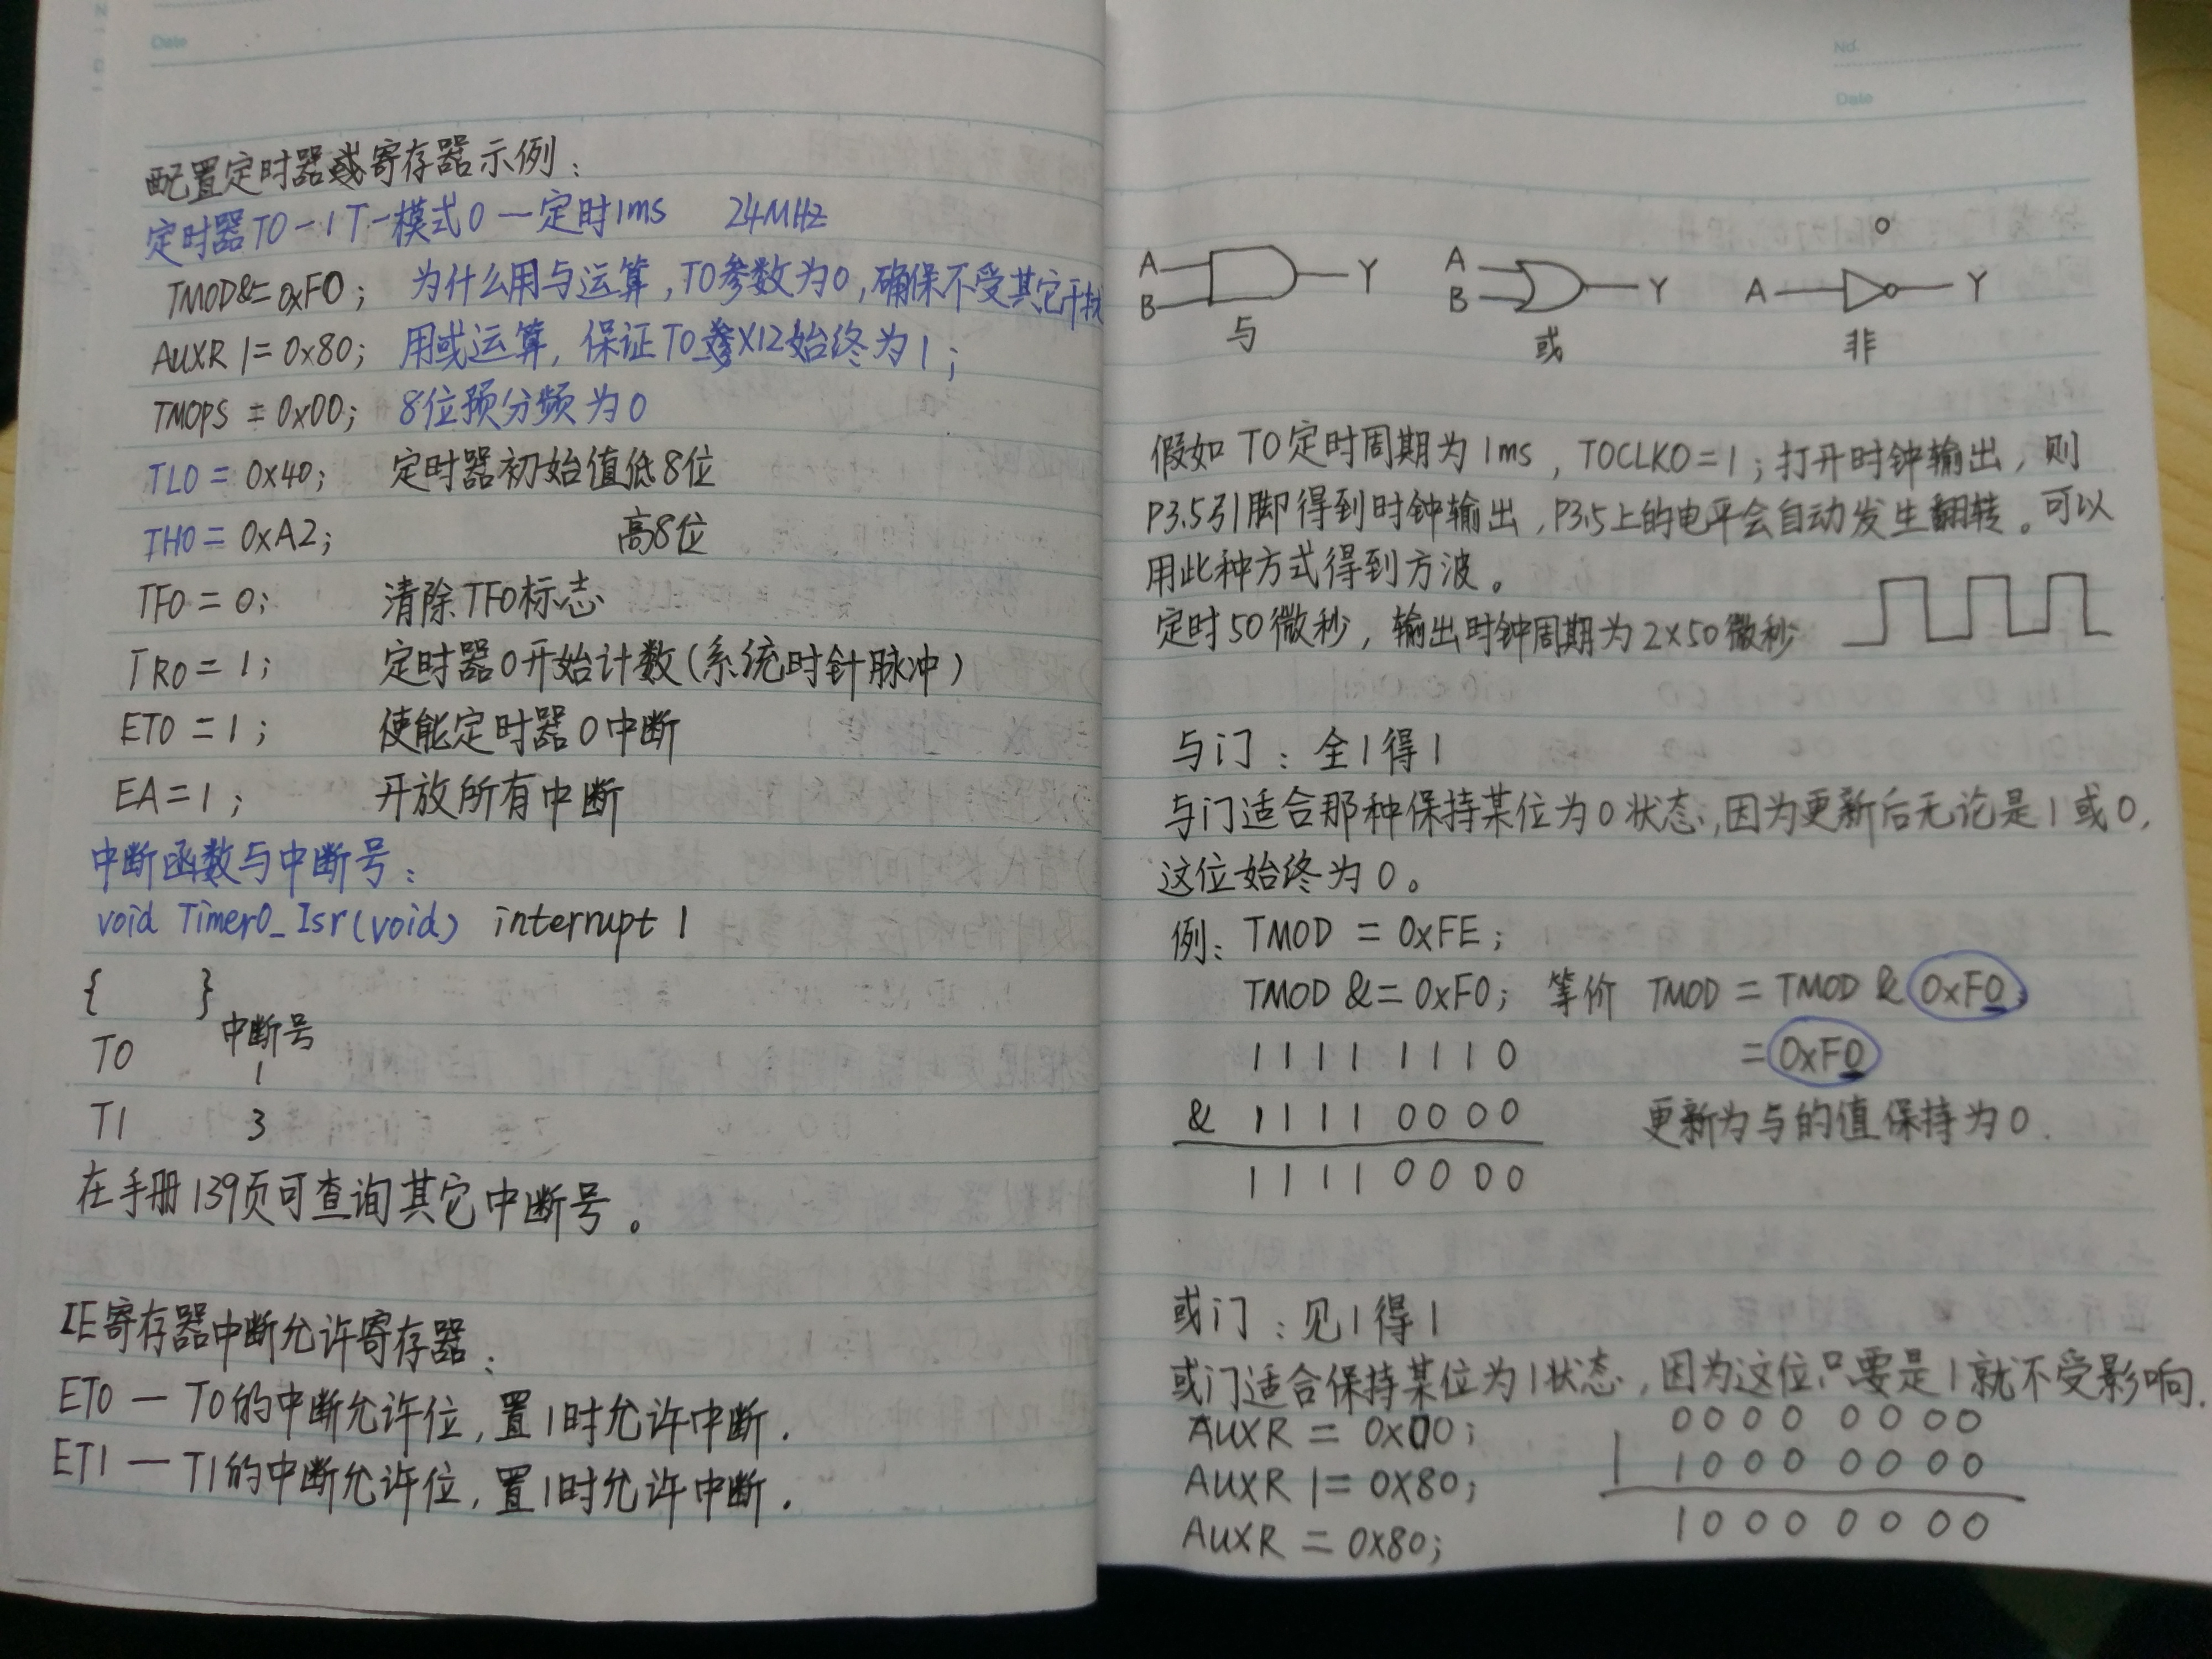 Date
配置定时器或寄存器示例：
定时器T0-1T-模式0—定时1ms 24MHz
TMOD&=0xF0; 为什么用与运算,T0参数为0,确保不受其它干扰
AUXR |=0x80; 用或运算，保证T0 X12始终为1；
TMOPS = 0x00; 8位预分频为0
TL0 = 0x40; 定时器初始值低8位
TH0 = 0xA2; 高8位
TF0 = 0; 清除TF0标志
TR0 = 1; 定时器0开始计数(系统时针脉冲)
ET0 = 1; 使能定时器0中断
EA=1; 开放所有中断
中断函数与中断号：
void Timer0_Isr(void) interrupt 1
{ }
中断号
T0 1
T1 3
在手册139页可查询其它中断号。
IE寄存器中断允许寄存器：
ET0 — T0的中断允许位,置1时允许中断.
ET1 — T1的中断允许位,置1时允许中断.
No.
Date
A B Y A B Y A Y
与 或 非
假如T0定时周期为1ms，T0CLKO=1；打开时钟输出，则
P3.5引脚得到时钟输出,P3.5上的电平会自动发生翻转。可以
用此种方式得到方波。
定时50微秒，输出时钟周期为2×50微秒
与门：全1得1
与门适合那种保持某位为0状态,因为更新后无论是1或0,
这位始终为0。
例：TMOD = 0xFE;
TMOD &= 0xF0; 等价 TMOD = TMOD & 0xF0;
1 1 1 1 1 1 1 0 = 0xF0
& 1 1 1 1 0 0 0 0 更新为与的值保持为0.
1 1 1 1 0 0 0 0
或门：见1得1
或门适合保持某位为1状态,因为这位只要是1就不受影响.
AUXR = 0x00; 0 0 0 0 0 0 0 0
AUXR |= 0X80; | 1 0 0 0 0 0 0 0
AUXR = 0x80; 1 0 0 0 0 0 0 0